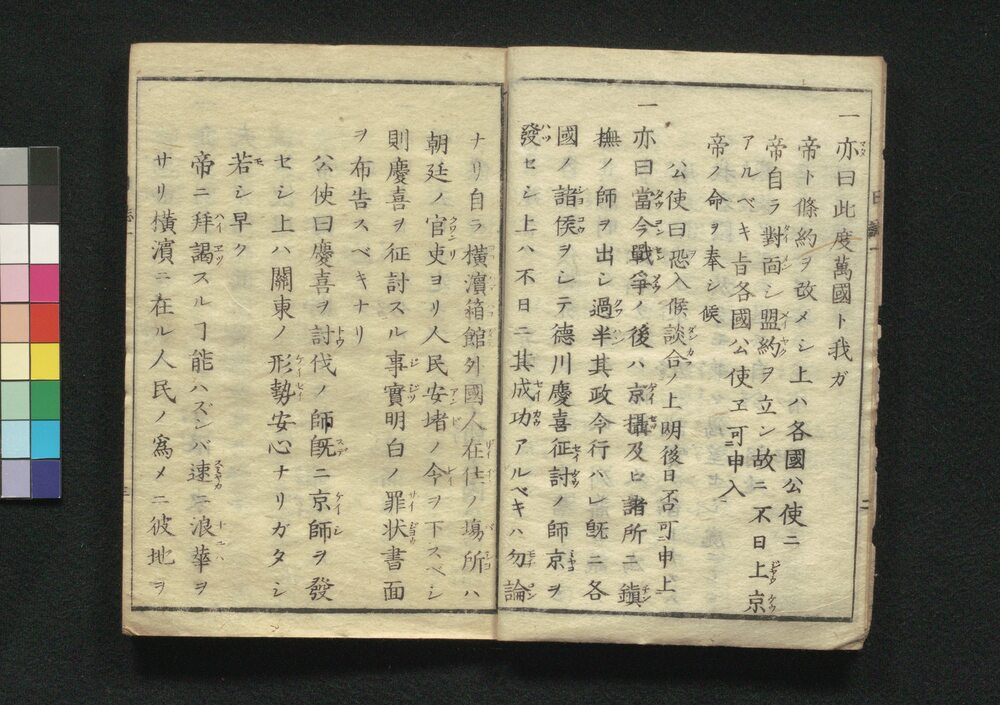 一亦曰此度萬國ト我ガ
帝ト條約ヲ改メシ上ハ各國公使ニ
帝自ラ對面シ盟約ヲ立ン故ニ不日上京
アルベキ旨各國公使ヱ可申入
帝ノ命ヲ奉シ候
公使曰恐入候談合ノ上明後日否可申上
一
亦曰當今戰爭ノ後ハ京攝及ヒ諸所ニ鎮
撫ノ師ヲ出シ過半其政令行ハレ既ニ各
國ノ諸侯ヲシテ德川慶喜征討ノ師京ヲ
發セシ上ハ不日ニ其成功アルベキハ勿論
ナリ自ラ橫濱箱館外國人在住ノ場所ハ
朝廷ノ官吏ヨリ人民安堵ノ令ヲ下スベシ
則慶喜ヲ征討スル事實明白ノ罪状書面
ヲ布告スベキナリ
公使曰慶喜ヲ討伐ノ師既ニ京師ヲ發
セシ上ハ關東ノ形勢安心ナリガタシ
若シ早ク
帝ニ拜謁スルヿ能ハズンバ速ニ浪華ヲ
サリ橫濱ニ在ル人民ノ爲メニ彼地ヲ